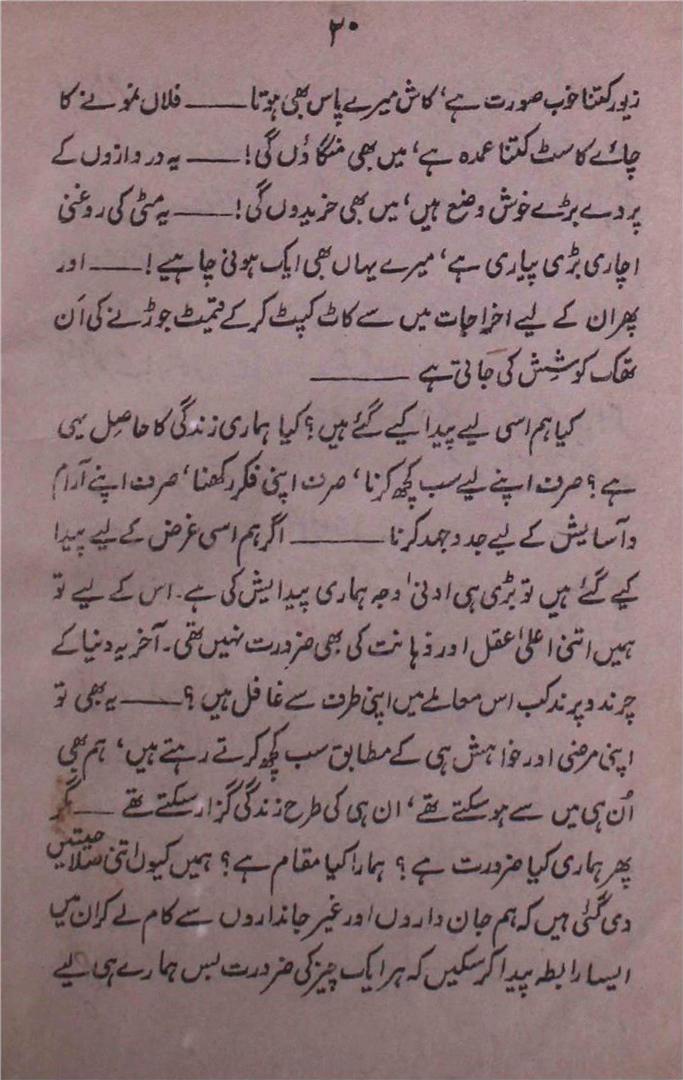 ۲۰
زیور کتنا خوب صورت ہے، کاش میرے پاس بھی ہوتا ——— فلاں نمونے کا
چائے کا سٹ کتنا عمدہ ہے، میں بھی منگاؤں گی! ——— یہ دروازوں کے
پردے بڑے خوش وضع ہیں، میں بھی خریدوں گی! ——— یہ مٹی کی روغنی
اچاری بڑی پیاری ہے، میرے یہاں بھی ایک ہونی چاہیے! ——— اور
پھر ان کے لیے اخراجات میں سے کاٹ کپٹ کر کے قیمت جوڑنے کی اَن
تھک کوشِش کی جاتی ہے ———
کیا ہم اسی لیے پیدا کیے گئے ہیں؟ کیا ہماری زندگی کا حاصِل یہی
ہے؟ صرف اپنے لیے سب کچھ کرنا، صرف اپنی فکر رکھنا، صرف اپنے آرام
و آسایش کے لیے جدوجہد کرنا ——— اگر ہم اسی غرض کے لیے پیدا
کیے گئے ہیں تو بڑی ہی ادنیٰ وجہ ہماری پیدایش کی ہے۔ اس کے لیے تو
ہمیں اتنی اعلیٰ عقل اور ذہانت کی بھی ضرورت نہیں تھی۔ آخر یہ دنیا کے
چرند و پرند کب اس معاملے میں اپنی طرف سے غافل ہیں؟ ——— یہ بھی تو
اپنی مرضی اور خواہش ہی کے مطابق سب کچھ کرتے رہتے ہیں، ہم بھی
اُن ہی میں سے ہو سکتے تھے، ان ہی کی طرح زندگی گزار سکتے تھے ——— مگر
پھر ہماری کیا ضرورت ہے؟ ہمارا کیا مقام ہے؟ ہمیں کیوں اتنی صلاحیتیں
دی گئی ہیں کہ ہم جان داروں اور غیر جانداروں سے کام لے کر ان میں
ایسا رابطہ پیدا کر سکیں کہ ہر ایک چیز کی ضرورت بس ہمارے ہی لیے